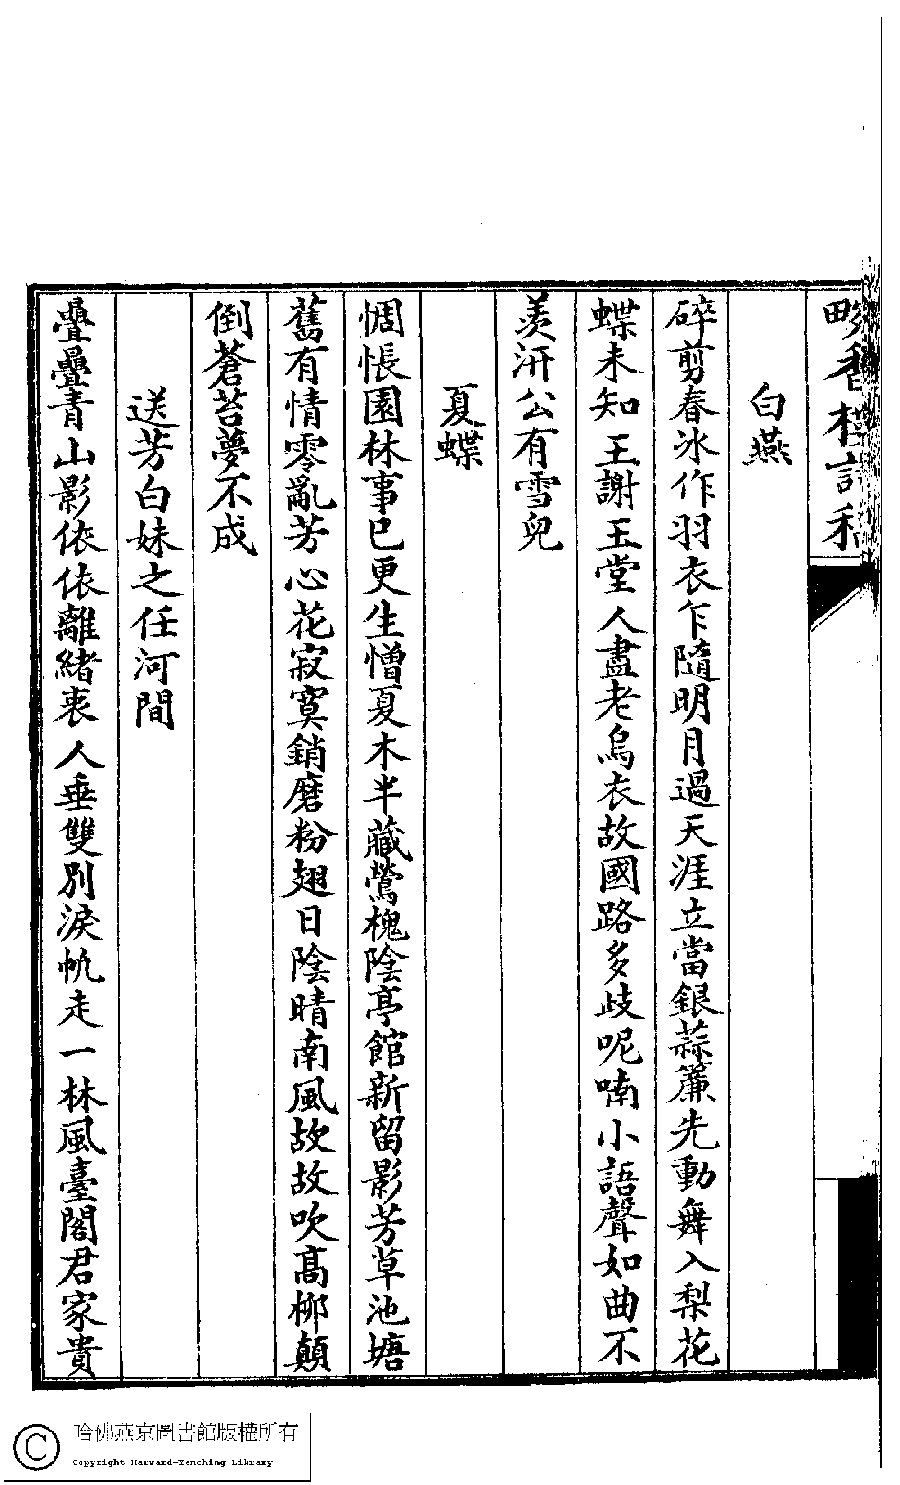 香樓詩和
白燕
碎剪春冰作羽衣乍隨明月過天涯立當銀蒜簾先動舞入梨花
蝶未知王謝玉堂人盡老烏衣故國路多歧呢喃小語聲如曲不
羨汧公有雪兒
夏蝶
惆悵園林事已更生憎夏木半藏鶯槐陰亭館新留影芳草池塘
舊有情零亂芳心花寂寞銷磨粉翅日陰晴南風故故吹高柳顛
倒蒼苔夢不成
送芳白妹之任河間
疊疊青山影依依離緒衷人垂雙別淚帆走一林風臺閣君家貴
哈佛燕京圖書館版權所有
Copyright Harvard-Yenching Library